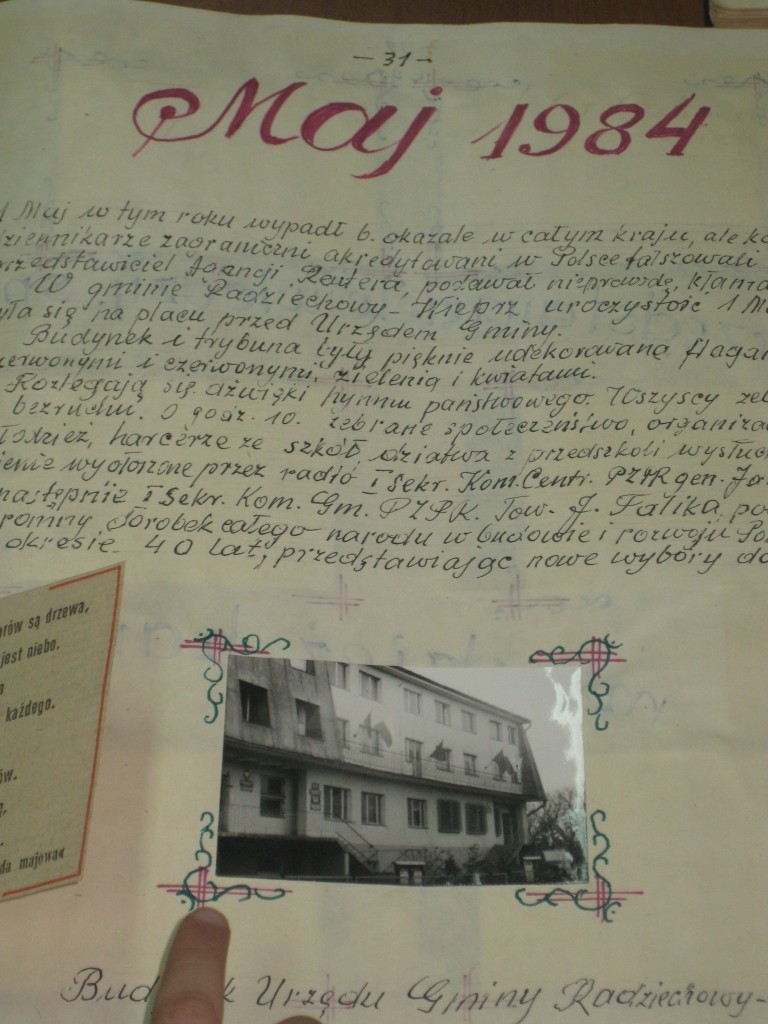 - 31 -
Maj 1984
1 Maj w tym roku wypadł b. okazale w całym kraju, ale
dziennikarze zagraniczni akredytowani w Polsce fałszowali
przedstawiciel Agencji Reutera, podawał nieprawdę,
W gminie Radziechowy-Wieprz uroczystość 1
się na placu przed Urzędem Gminy.
Budynek i trybuna były pięknie udekorowaną
czerwonymi i czerwonymi, zielenią i kwiatami.
Rozlegają się dźwięki hymnu państwowego. Wszyscy
bezruchu. O godz. 10. zebrane społeczeństwo,
harcerze ze szkół, dziatwa z przedszkoli
wygłoszone przez radio I Sekr. Kom. Centr. PZPR gen.
następnie I Sekr. Kom. Gm. PZPR. Tow. J. Falika
dorobek całego narodu w budowie i rozwoju
okresie 40 lat, przedstawiając nowe wybory do
są drzewa,
jest niebo.
każdego.
majową
Urzędu Gminy Radziechowy-